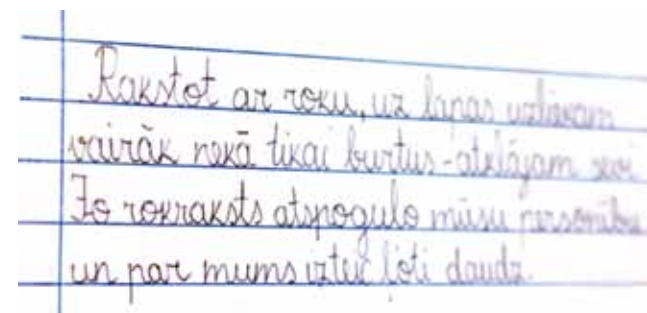 Rakstot ar roku, uz lapas uzliekam
vairāk nekā tikai burtus - atklājam sevi
Jo rokraksts atspoguļo mūsu personību
un par mums izteic ļoti daudz.